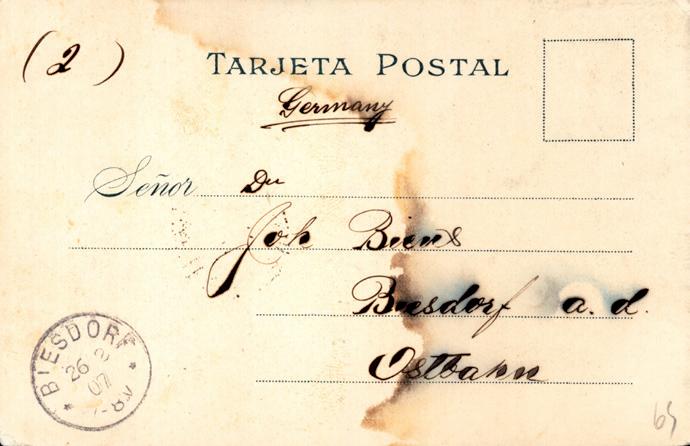 (2)
TARJETA POSTAL
Germany
Señor Dr
Joh Biens
Biesdorf a. d.
Ostbahn
BIESDORF
26 3
07
7-8N
64